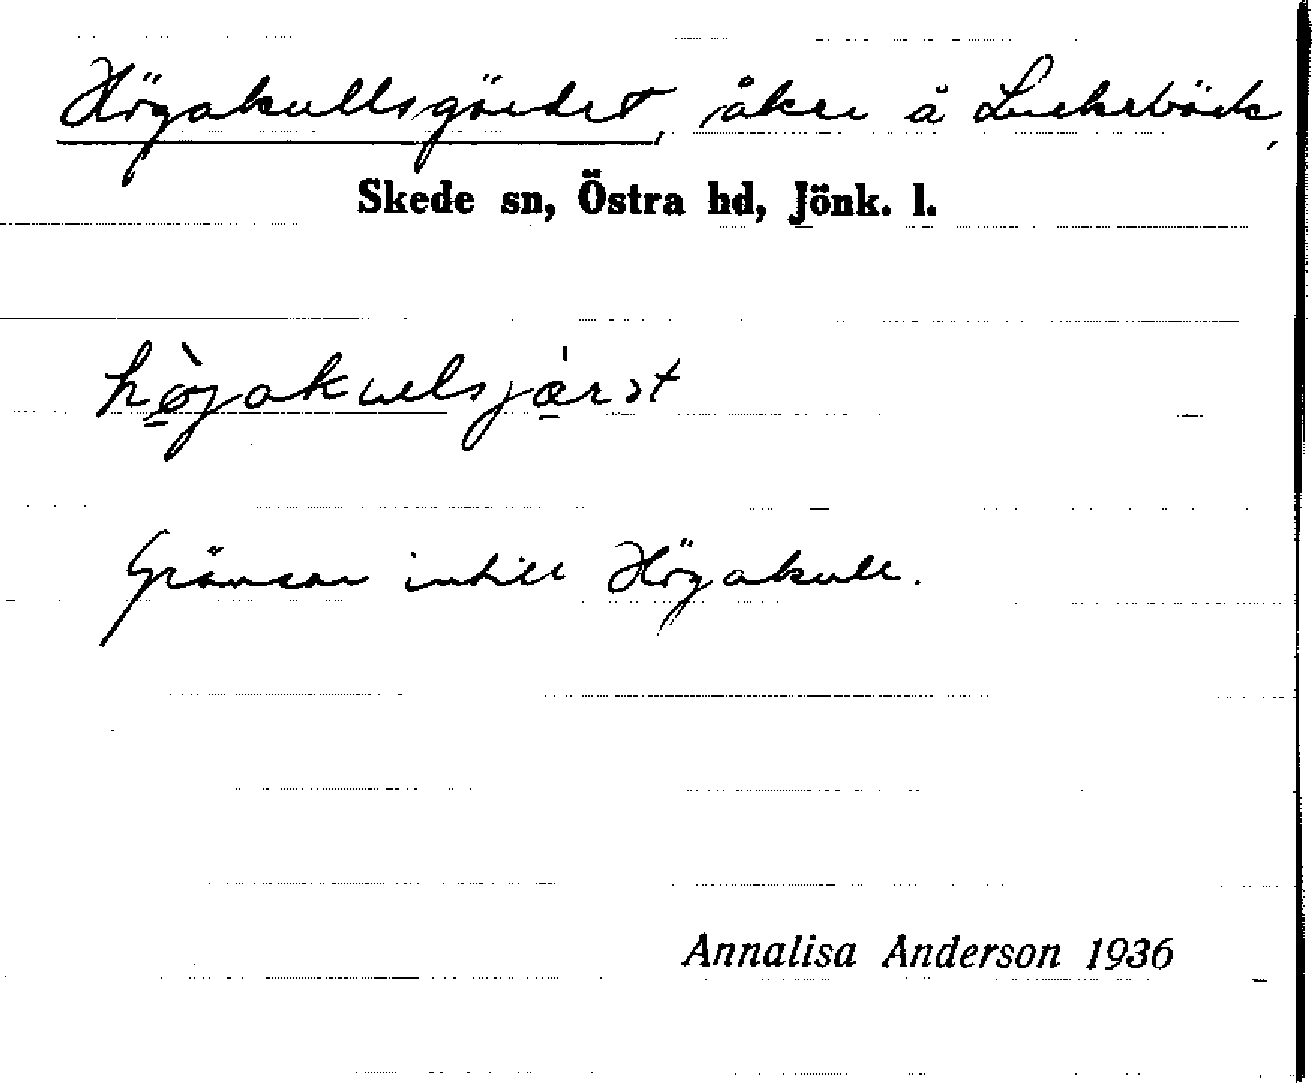 Högakullsgärdet, åker å Luckebäck,
Skede sn, Östra hd, Jönk. l.
Gränsar intill Högakull.
Annalisa Anderson 1936